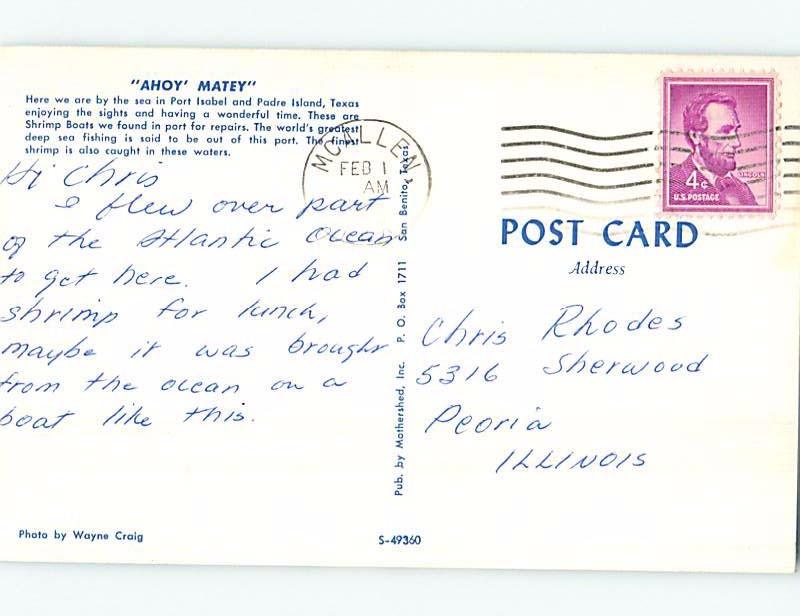 "AHOY' MATEY"
Here we are by the sea in Port Isabel and Padre Island, Texas
enjoying the sights and having a wonderful time. These are
Shrimp Boats we found in port for repairs. The world's greatest
deep sea fishing is said to be out of this port. The finest
shrimp is also caught in these waters.
Hi Chris
I flew over part
of the Atlantic Ocean
to get here. I had
shrimp for lunch,
maybe it was brought
from the ocean on a
boat like this.
Photo by Wayne Craig
Pub. by Mothershed, Inc. P. O. Box 1711 San Benito, Texas
S-49360
MCALLEN
FEB 1
AM
4¢
LINCOLN
U.S. POSTAGE
POST CARD
Address
Chris Rhodes
5316 Sherwood
Peoria
ILLINOIS